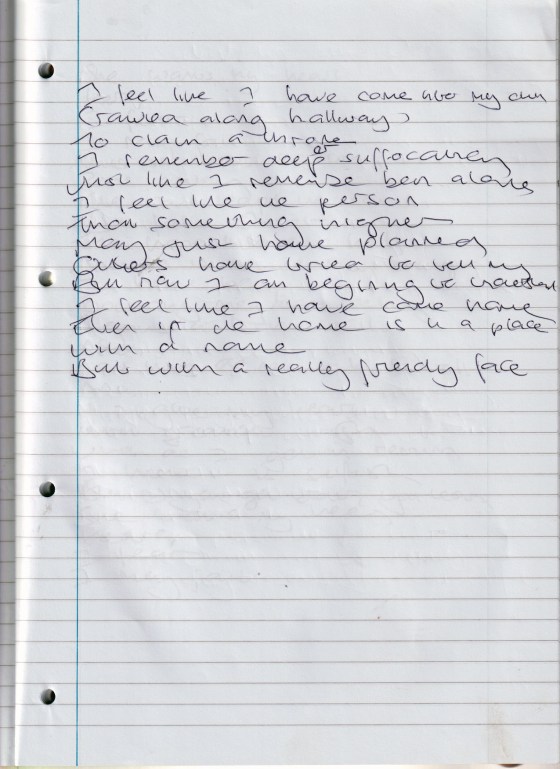 I feel like I have come into my own
Crawled along hallways
To claim a throne
I remember deep suffocating
Just like I remember been alone
I feel like the person
Than something higher
May just have planned
Others have tried to tell my
But now I am begining to
I feel like I have come home
Even if the home is a place
with a name
But with a really friendly face